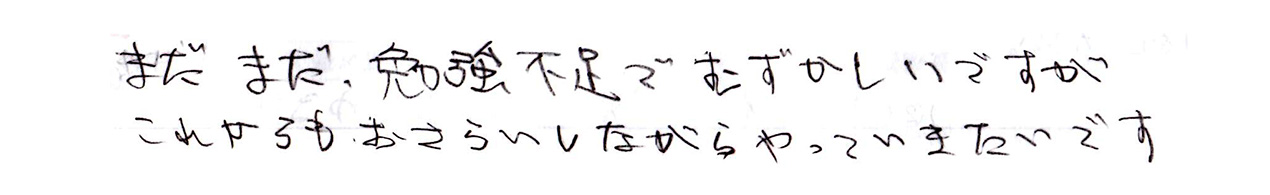 まだまだ、勉強不足でむずかしいですが
これからもおさらいしながらやっていきたいです